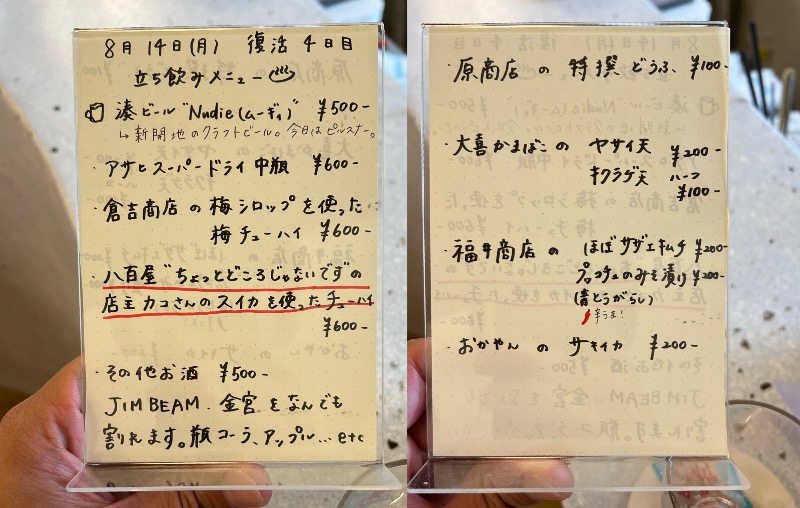 8月14日(月) 復活 4日目
立ち飲みメニュー
湊ビール"Nudie(ムーディ)" ¥500-
↳新開地のクラフトビール。今日はピルスナー。
・アサヒスーパードライ中瓶 ¥600-
・倉吉商店の梅シロップを使った
梅チューハイ ¥600-
・八百屋"ちょっとどころじゃないです"の
店主カコさんのスイカを使ったチューハイ
¥600-
・その他お酒 ¥500-
JIM BEAM、金宮をなんでも
割れます。瓶コーラ、アップル...etc
・原商店の特撰どうふ ¥100-
・大喜かまぼこの ヤサイ天 ¥200-
キクラゲ天 ハーフ
¥100-
・福井商店の ほぼサザエキムチ ¥200-
プッコチュのみそ漬け ¥200-
(青とうがらし)
辛うま!
・おかやんの サキイカ ¥200-